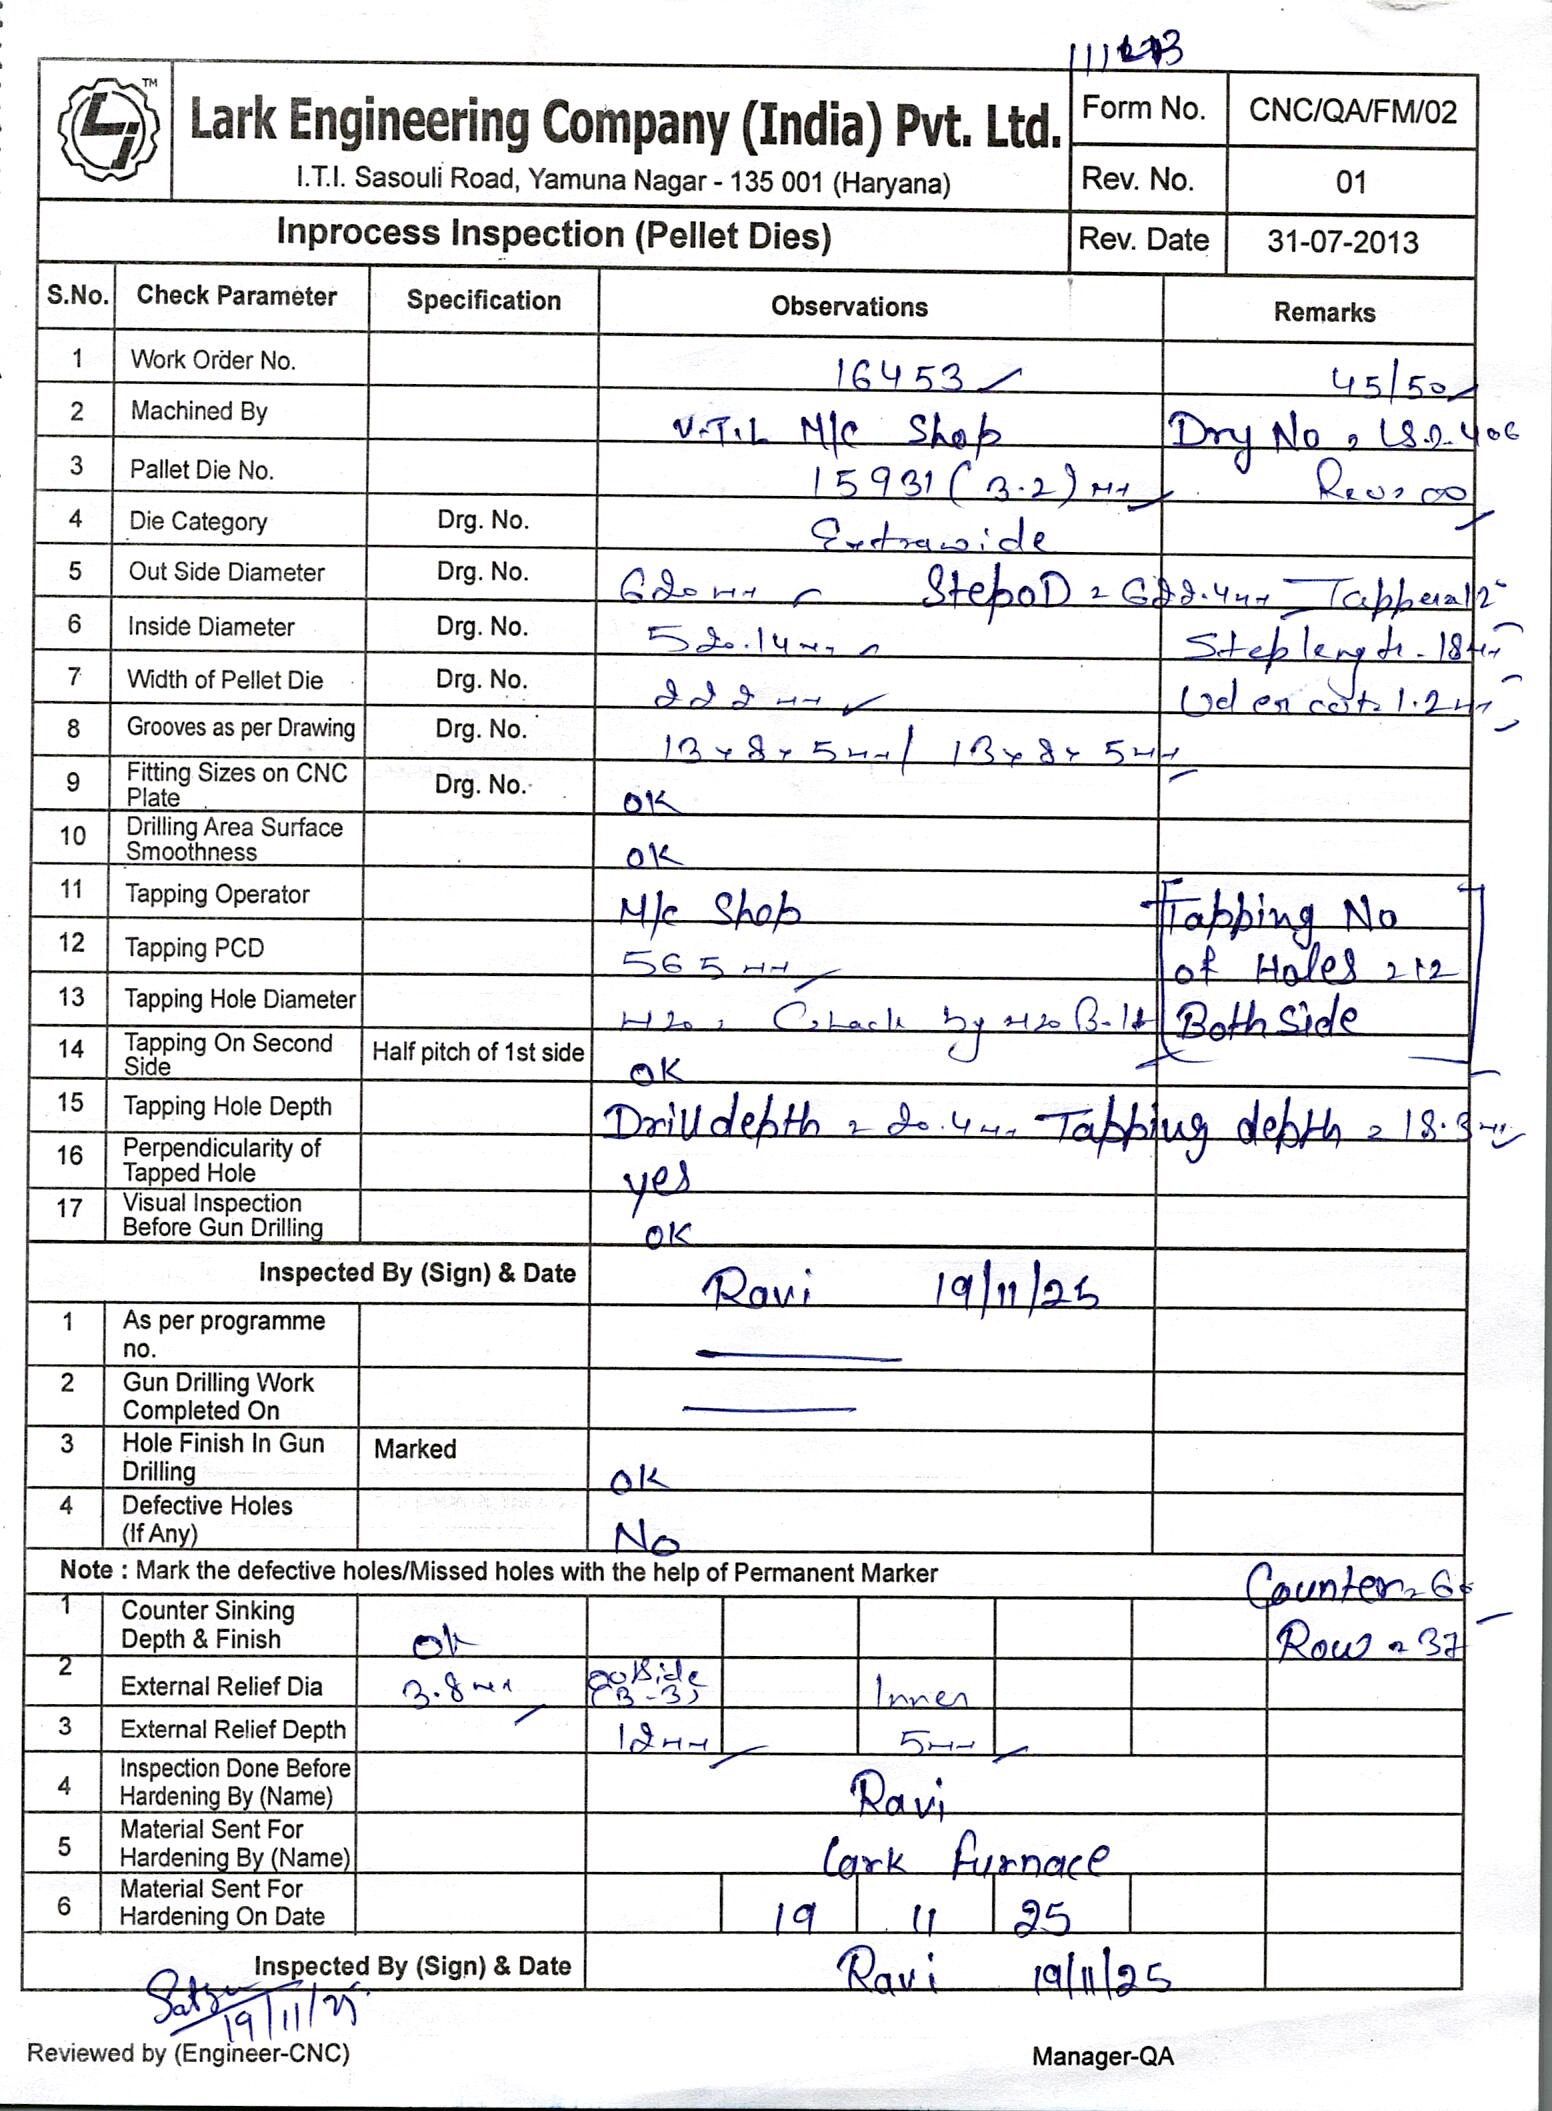 111273
TM
Lark Engineering Company (India) Pvt. Ltd.
I.T.I. Sasouli Road, Yamuna Nagar - 135 001 (Haryana)
Form No. CNC/QA/FM/02
Rev. No. 01
Inprocess Inspection (Pellet Dies) Rev. Date 31-07-2013
S.No. Check Parameter Specification Observations Remarks
1 Work Order No. 16453 45/50
2 Machined By V.T.L M/c Shop Drg No = LS.D.406
3 Pallet Die No. 15931 (3.2) mm Rev = 00
4 Die Category Drg. No. Extrawide
5 Out Side Diameter Drg. No. 620 mm Step OD = 622.4mm Tapperal 2°
6 Inside Diameter Drg. No. 520.14mm Step length - 18mm
7 Width of Pellet Die Drg. No. 222 mm Ud er cut = 1.2mm
8 Grooves as per Drawing Drg. No. 13 x 8 x 5mm / 13 x 8 x 5mm
9 Fitting Sizes on CNC Plate Drg. No. OK
10 Drilling Area Surface Smoothness OK
11 Tapping Operator M/c Shop Tapping No
12 Tapping PCD 565 mm of Holes = 12
13 Tapping Hole Diameter M20, Check by M20 Bolt Both Side
14 Tapping On Second Side Half pitch of 1st side OK
15 Tapping Hole Depth Drill depth = 20.4mm Tapping depth = 18.3mm
16 Perpendicularity of Tapped Hole yes
17 Visual Inspection Before Gun Drilling OK
Inspected By (Sign) & Date Ravi 19/11/25
1 As per programme no.
2 Gun Drilling Work Completed On
3 Hole Finish In Gun Drilling Marked OK
4 Defective Holes (If Any) No
Note : Mark the defective holes/Missed holes with the help of Permanent Marker Counter = 60
1 Counter Sinking Depth & Finish OK Row = 37
2 External Relief Dia 3.8mm outside (3-3) Inner
3 External Relief Depth 12mm 5mm
4 Inspection Done Before Hardening By (Name) Ravi
5 Material Sent For Hardening By (Name) Lark furnace
6 Material Sent For Hardening On Date 19 11 25
Inspected By (Sign) & Date Ravi 19/11/25
19/11/25
Reviewed by (Engineer-CNC) Manager-QA